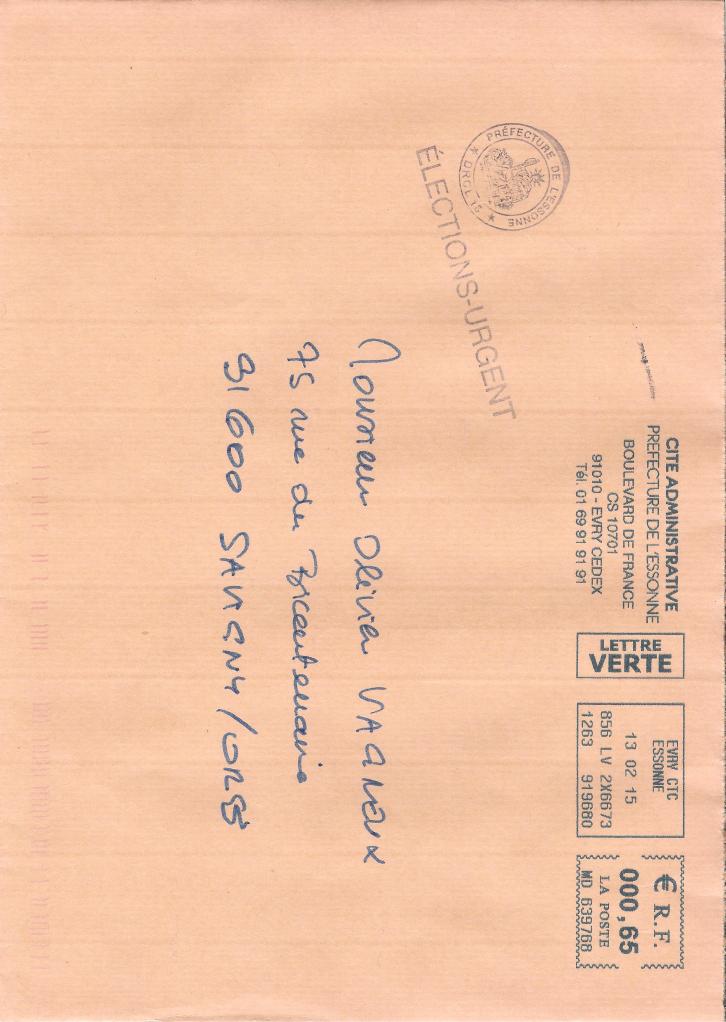 CITE ADMINISTRATIVE
PREFECTURE DE L'ESSONNE
BOULEVARD DE FRANCE
CS 10701
91010 - EVRY CEDEX
Tél. 01 69 91 91 91
LETTRE
VERTE
EVRY CTC
ESSONNE
13 02 15
856 LV 2X6673
1263 919680
€ R.F.
000,65
LA POSTE
MD 639768
PRÉFECTURE DE L'ESSONNE
ÉLECTIONS-URGENT
Monsieur Olivier VAGNEUX
75 rue du
91600 SAVIGNY/ORGE